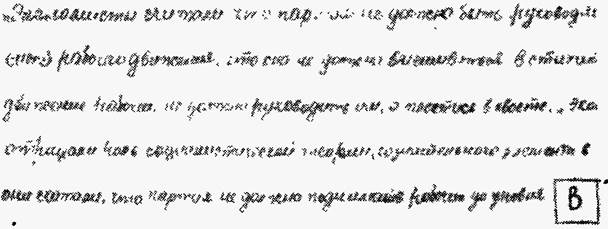 Экономисты считали что партия не должна быть руководя
силой рабочего движения, что она не должна вмешиваться в стихий
движение рабочих, не должна руководить им, а плестись в хвосте. Эко
отрицали роль социалистической теории, сознательного элемента в
они считали, что партия не должна поднимать рабочих до уровня В